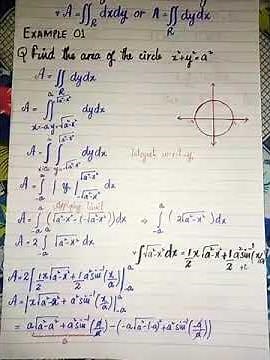 ∵ A = ∬_R dxdy or A = ∬_R dydx
EXAMPLE 01
Q Find the area of the circle x²+y²=a²
A = ∬_R dydx
A = ∫_{x=-a}^{a} ∫_{y=-√a²-x²}^{√a²-x²} dydx
A = ∫_{-a}^{a} ∫_{-√a²-x²}^{√a²-x²} dydx
A = ∫_{-a}^{a} | y |_{-√a²-x²}^{√a²-x²} dx
Applying limit
A = ∫_{-a}^{a} (√a²-x² - (-√a²-x²)) dx ⇒ ∫_{-a}^{a} (2√a²-x²) dx
A = 2 ∫_{-a}^{a} √a²-x² dx
∵ ∫√a²-x² dx = 1/2 x √a²-x² + 1/2 a² sin⁻¹(x/a)
A = 2 [ 1/2 x √a²-x² + 1/2 a² sin⁻¹(x/a) ]_{-a}^{a}
A = | x √a²-x² + a² sin⁻¹(x/a) |_{-a}^{a}
= (a√a²-a² + a² sin⁻¹(a/a)) - (-a√a²-(-a)² + a² sin⁻¹(-a/a))